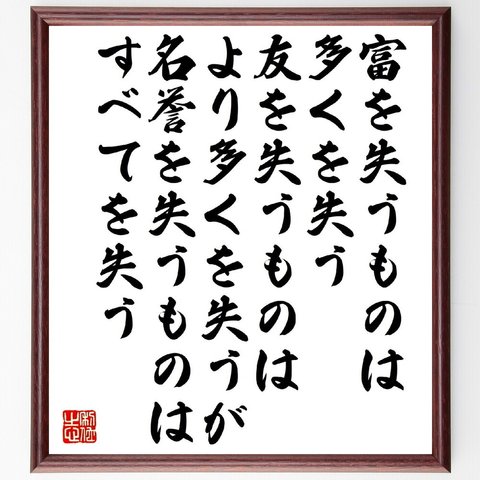 富を失うものは
多くを失う
友を失うものは
より多くを失うが
名誉を失うものは
すべてを失う